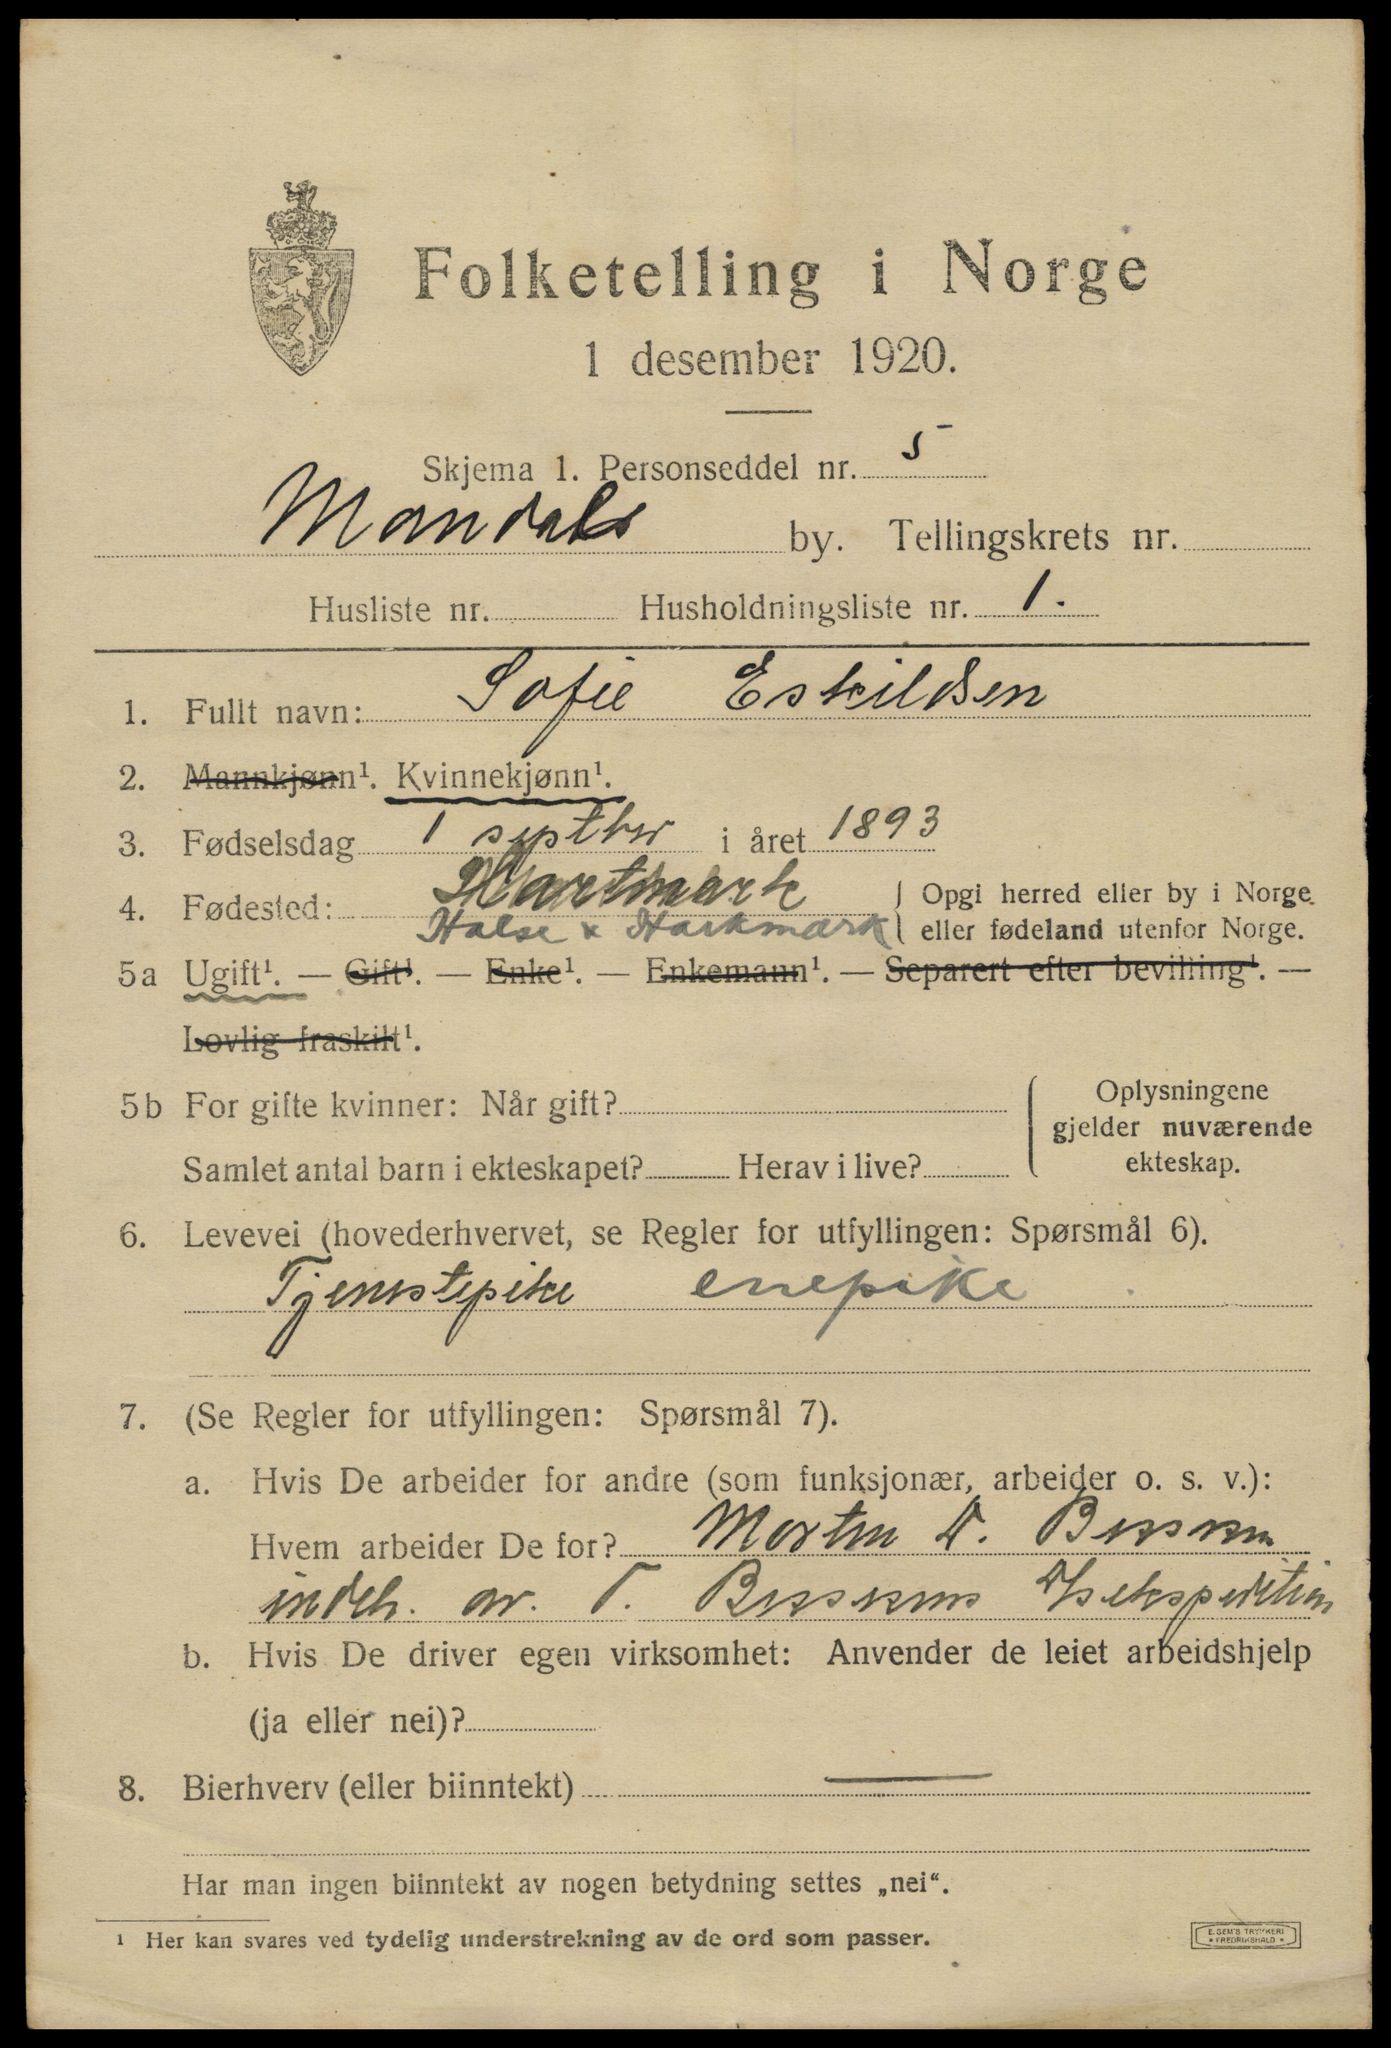 Folketelling i Norge
1 desember 1920.
Skjema 1. Personseddel nr. 5
Mandals by. Tellingskrets nr.
Husliste nr. Husholdningsliste nr. 1.
1. Fullt navn: Sofie Eskildsen
2. Mannkjønn¹. Kvinnekjønn¹.
3. Fødselsdag 1 septbr i året 1893
4. Fødested: Hartmark { Opgi herred eller by i Norge
Halse x Harkmark eller fødeland utenfor Norge.
5a Ugift¹. — Gift¹. — Enke¹. — Enkemann¹. — Separert efter bevilling¹. —
Lovlig fraskilt¹.
5b For gifte kvinner: Når gift? { Oplysningene
gjelder nuværende
Samlet antal barn i ekteskapet? Herav i live? ekteskap.
6. Levevei (hovederhvervet, se Regler for utfyllingen: Spørsmål 6).
Tjenestepike enepike
7. (Se Regler for utfyllingen: Spørsmål 7).
a. Hvis De arbeider for andre (som funksjonær, arbeider o. s. v.):
Hvem arbeider De for? Morten
indeh. av. T.
b. Hvis De driver egen virksomhet: Anvender de leiet arbeidshjelp
(ja eller nei)?
8. Bierhverv (eller biinntekt) —
Har man ingen biinntekt av nogen betydning settes „nei“.
¹ Her kan svares ved tydelig understrekning av de ord som passer.
E. SEM'S TRYKKERI
* FREDRIKSHALD *